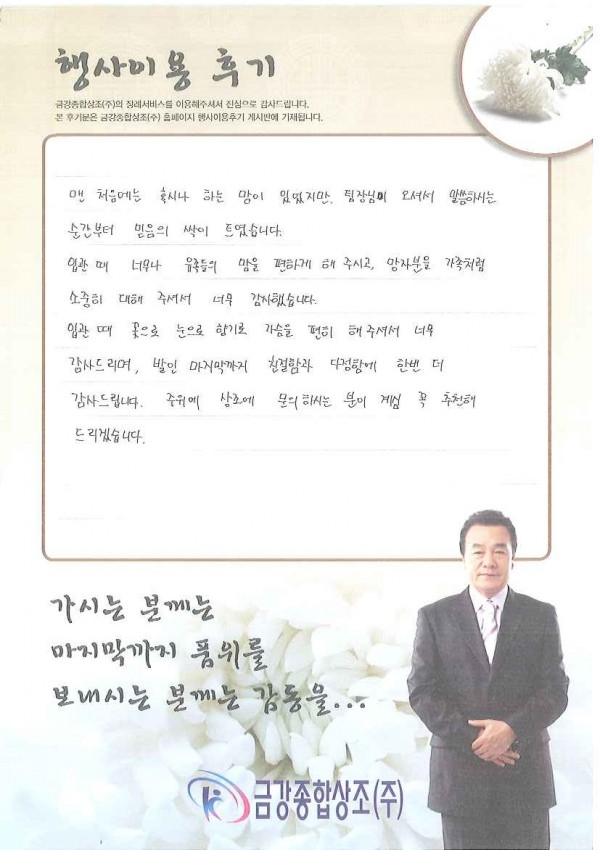 행사이용 후기
금강종합상조(주)의 장례서비스를 이용해주셔서 진심으로 감사드립니다.
본 후기분은 금강종합상조(주) 홈페이지 행사이용후기 게시판에 기재됩니다.
맨 처음에는 혹시나 하는 맘이 있었지만, 팀장님이 오셔서 말씀하시는
순간부터 믿음의 싹이 트였습니다.
입관 때 너무나 유족들의 맘을 편하게 해 주시고, 망자분을 가족처럼
소중히 대해 주셔서 너무 감사했습니다.
입관 때 꽃으로 눈으로 향기로 가슴을 편히 해 주셔서 너무
감사드리며, 발인 마지막까지 친절함과 다정함에 한번 더
감사드립니다. 주위에 상조에 문의하시는 분이 계심 꼭 추천해
드리겠습니다.
가시는 분께는
마지막까지 품위를
보내시는 분께는 감동을...
금강종합상조(주)